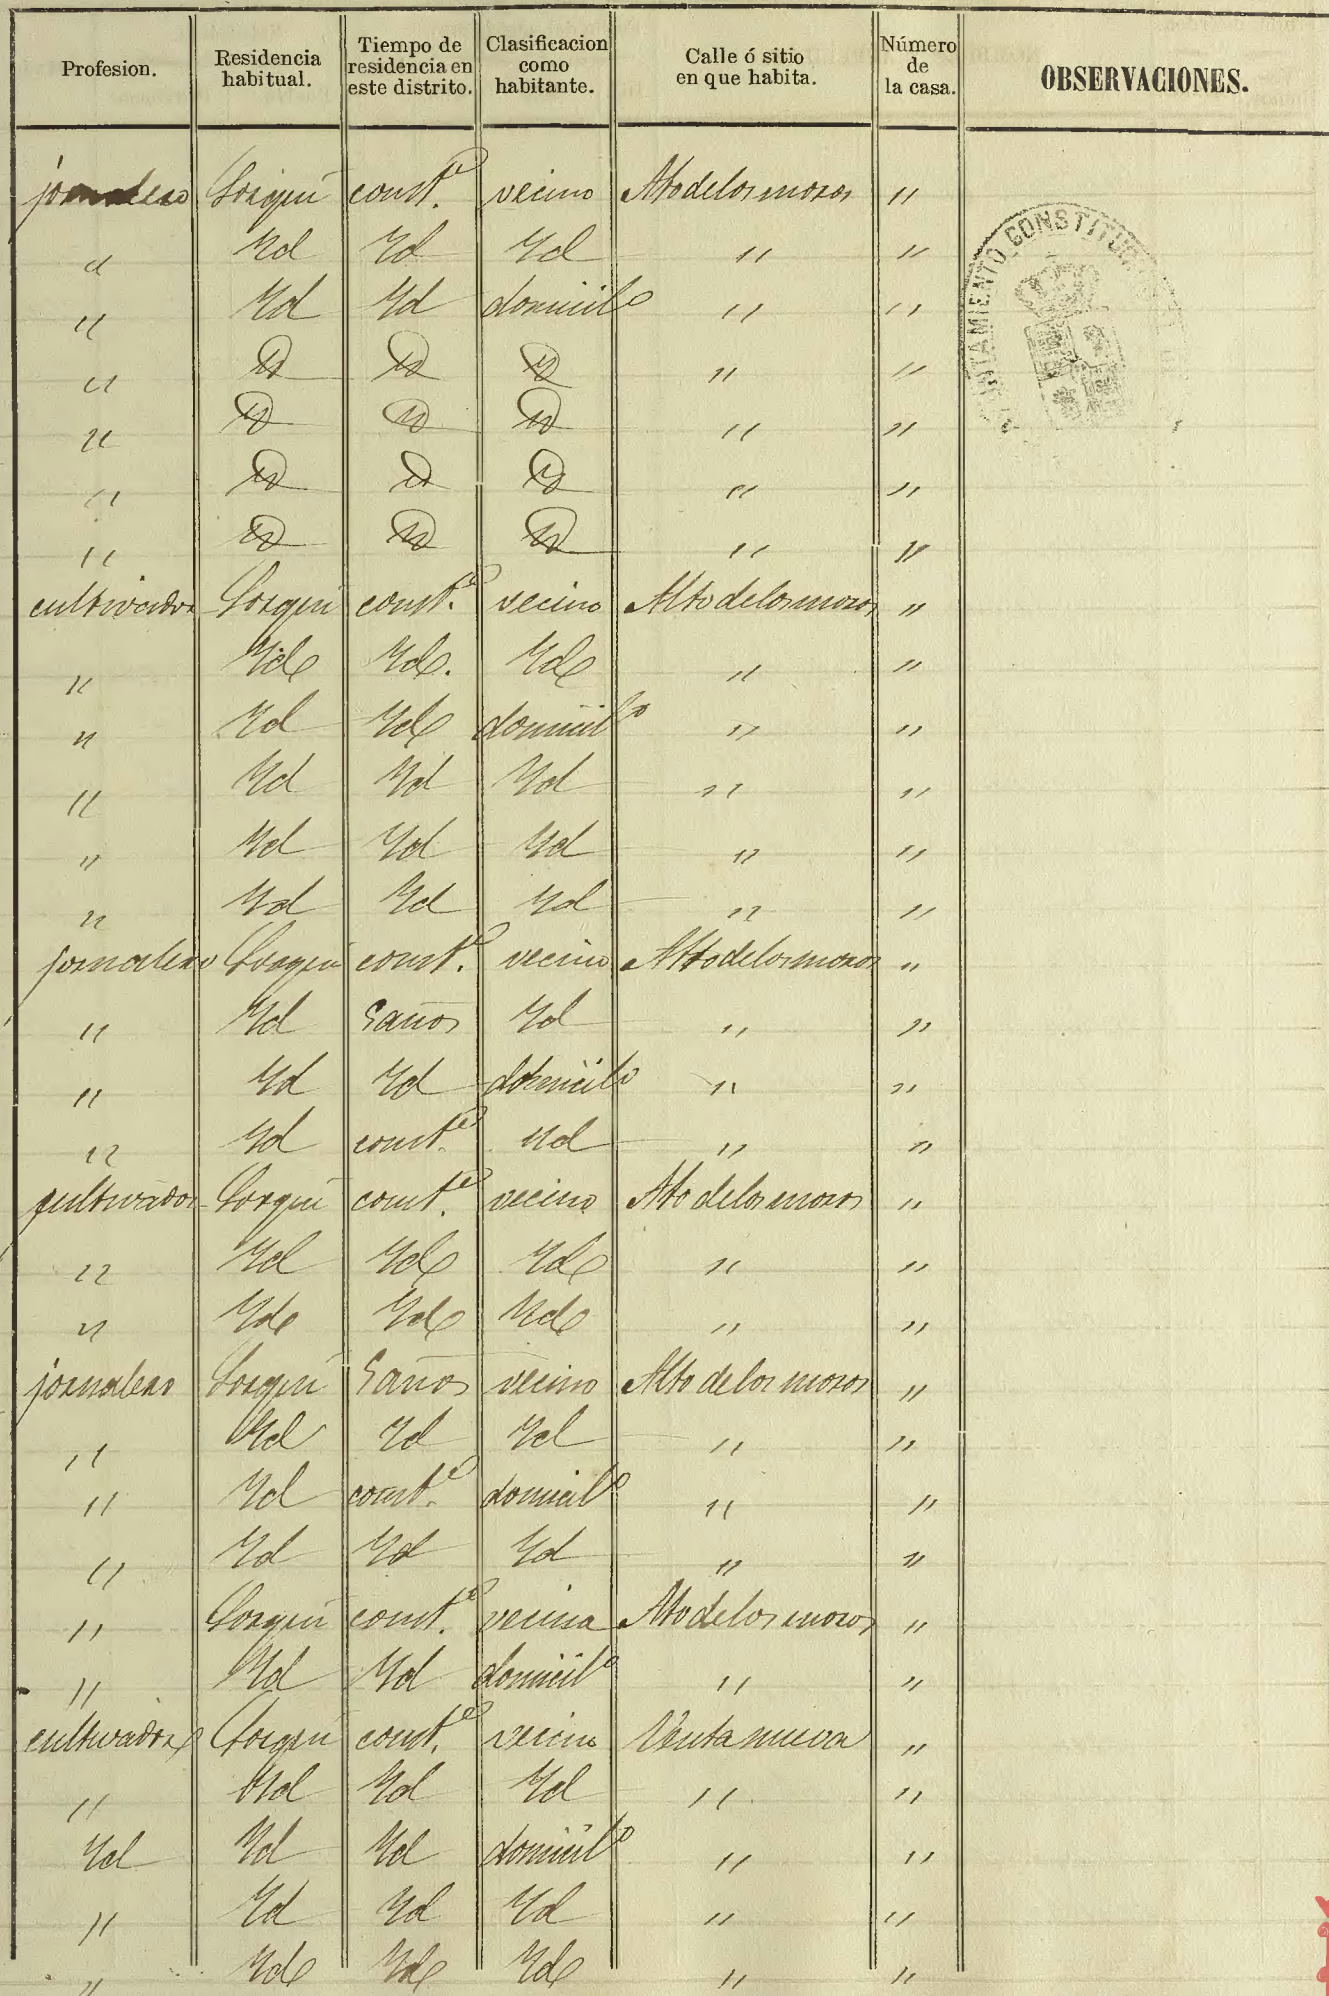 Profesion. Residencia habitual. Tiempo de residencia en este distrito. Clasificacion como habitante. Calle ó sitio en que habita. Número de la casa. OBSERVACIONES.
jornalero Lorquí const.e vecino Alto de los moros "
" Yd Yd Yd " "
" Yd Yd domicil.o " "
" Yd Yd Yd " "
" Yd Yd Yd " "
" Yd Yd Yd " "
" Yd Yd Yd " "
cultivador Lorquí const.e vecino Alto de los moros "
" Yd Yd. Yd " "
" Yd Yd domicil.o " "
" Yd Yd Yd " "
" Yd Yd Yd " "
" Yd Yd Yd " "
jornalero Lorquí const.e vecino Alto de los moros "
" Yd 5 años Yd " "
" Yd Yd domicil.o " "
" Yd const.e Yd " "
cultivador Lorquí const.e vecino Alto de los moros "
" Yd Yd Yd " "
" Yd Yd Yd " "
jornalero Lorquí 5 años vecino Alto de los moros "
" Yd Yd Yd " "
" Yd const.e domicil.o " "
" Yd Yd Yd " "
" Lorquí const.e vecina Alto de los moros "
" Yd Yd domicil.o " "
cultivador Lorquí const.e vecino Venta nueva "
" Yd Yd Yd " "
Yd Yd Yd domicil.o " "
" Yd Yd Yd " "
" Yd Yd Yd " "